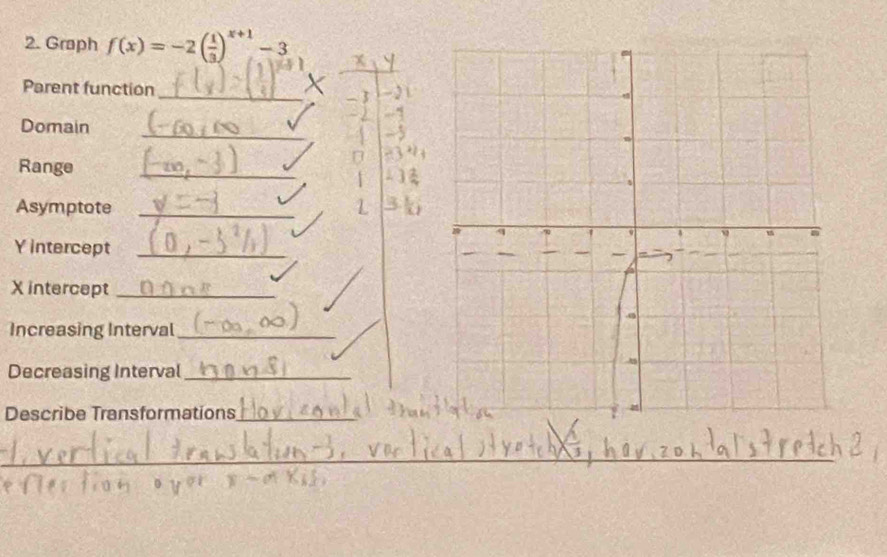 2. Graph f(x) = -2(1/3)^{x+1} - 3
x y
Parent function f(x) = (1/3)^{x+1} X
-3 -21
-2 -9
Domain (-∞, ∞) ✓
-1 -5
Range (-∞, -3) ✓
0 -3 2/3
1
2
Asymptote y = -3 ✓
Y intercept (0, -3 2/3) ✓
X intercept none ✓
Increasing Interval (-∞, ∞) ✓
Decreasing Interval none ✓
Describe Transformations Horizontal translation
-1, vertical translation -3, vertical stretch, horizontal stretch 2,
reflection over x-axis,